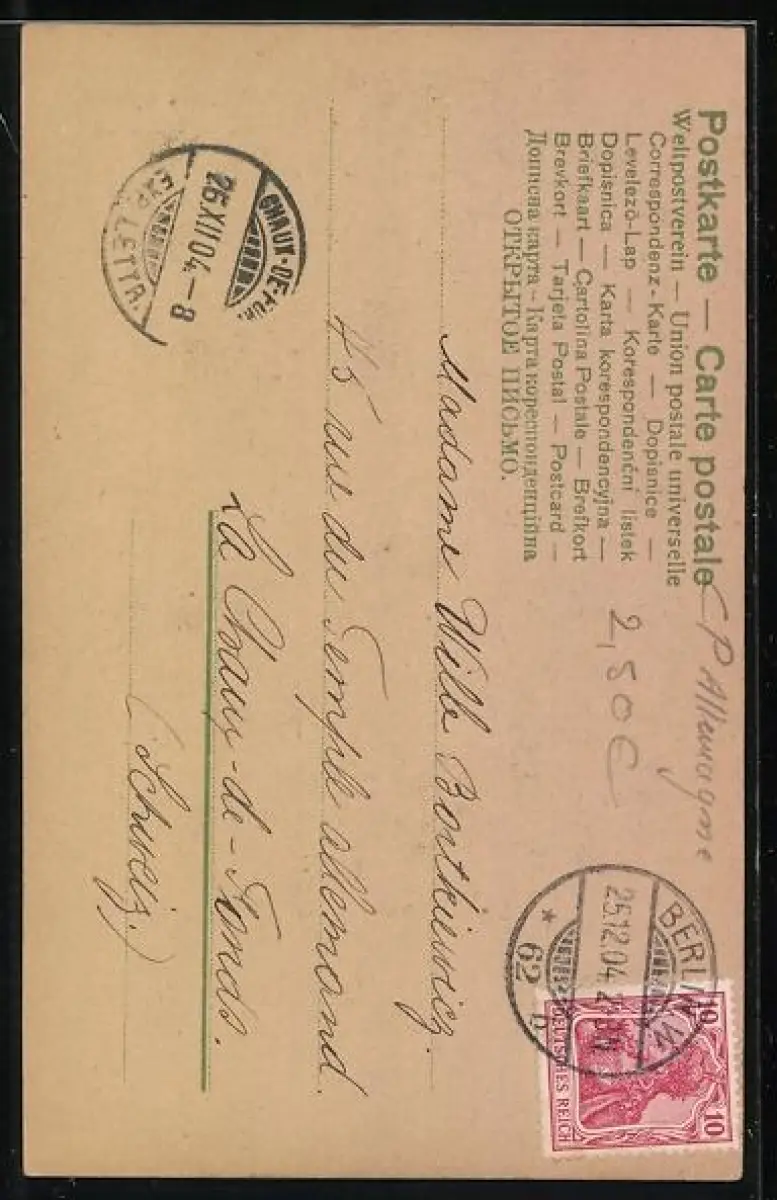 Postkarte — Carte postale
Weltpostverein — Union postale universelle
Correspondenz-Karte — Dopisnice —
Levelező-Lap — Korespondenční lístek
Dopisnica — Karta korespondencyjna —
Briefkaart — Cartolina Postale — Brefkort
Brevkort — Tarjeta Postal — Postcard —
Дописна карта — Карта кореспонденційна
ОТКРЫТОЕ ПИСЬМО.
CP Allemagne
2,50€
BERLIN W
25.12.04.
* 62 b
10 10
DEUTSCHES REICH
CHAUX-DE-FDS.
26.XII.04.–8
EXP. LETTR.
Madame Wille Bortkiewicz.
45 rue du Temple allemand.
La Chaux-de-Fonds.
(Schweiz.)